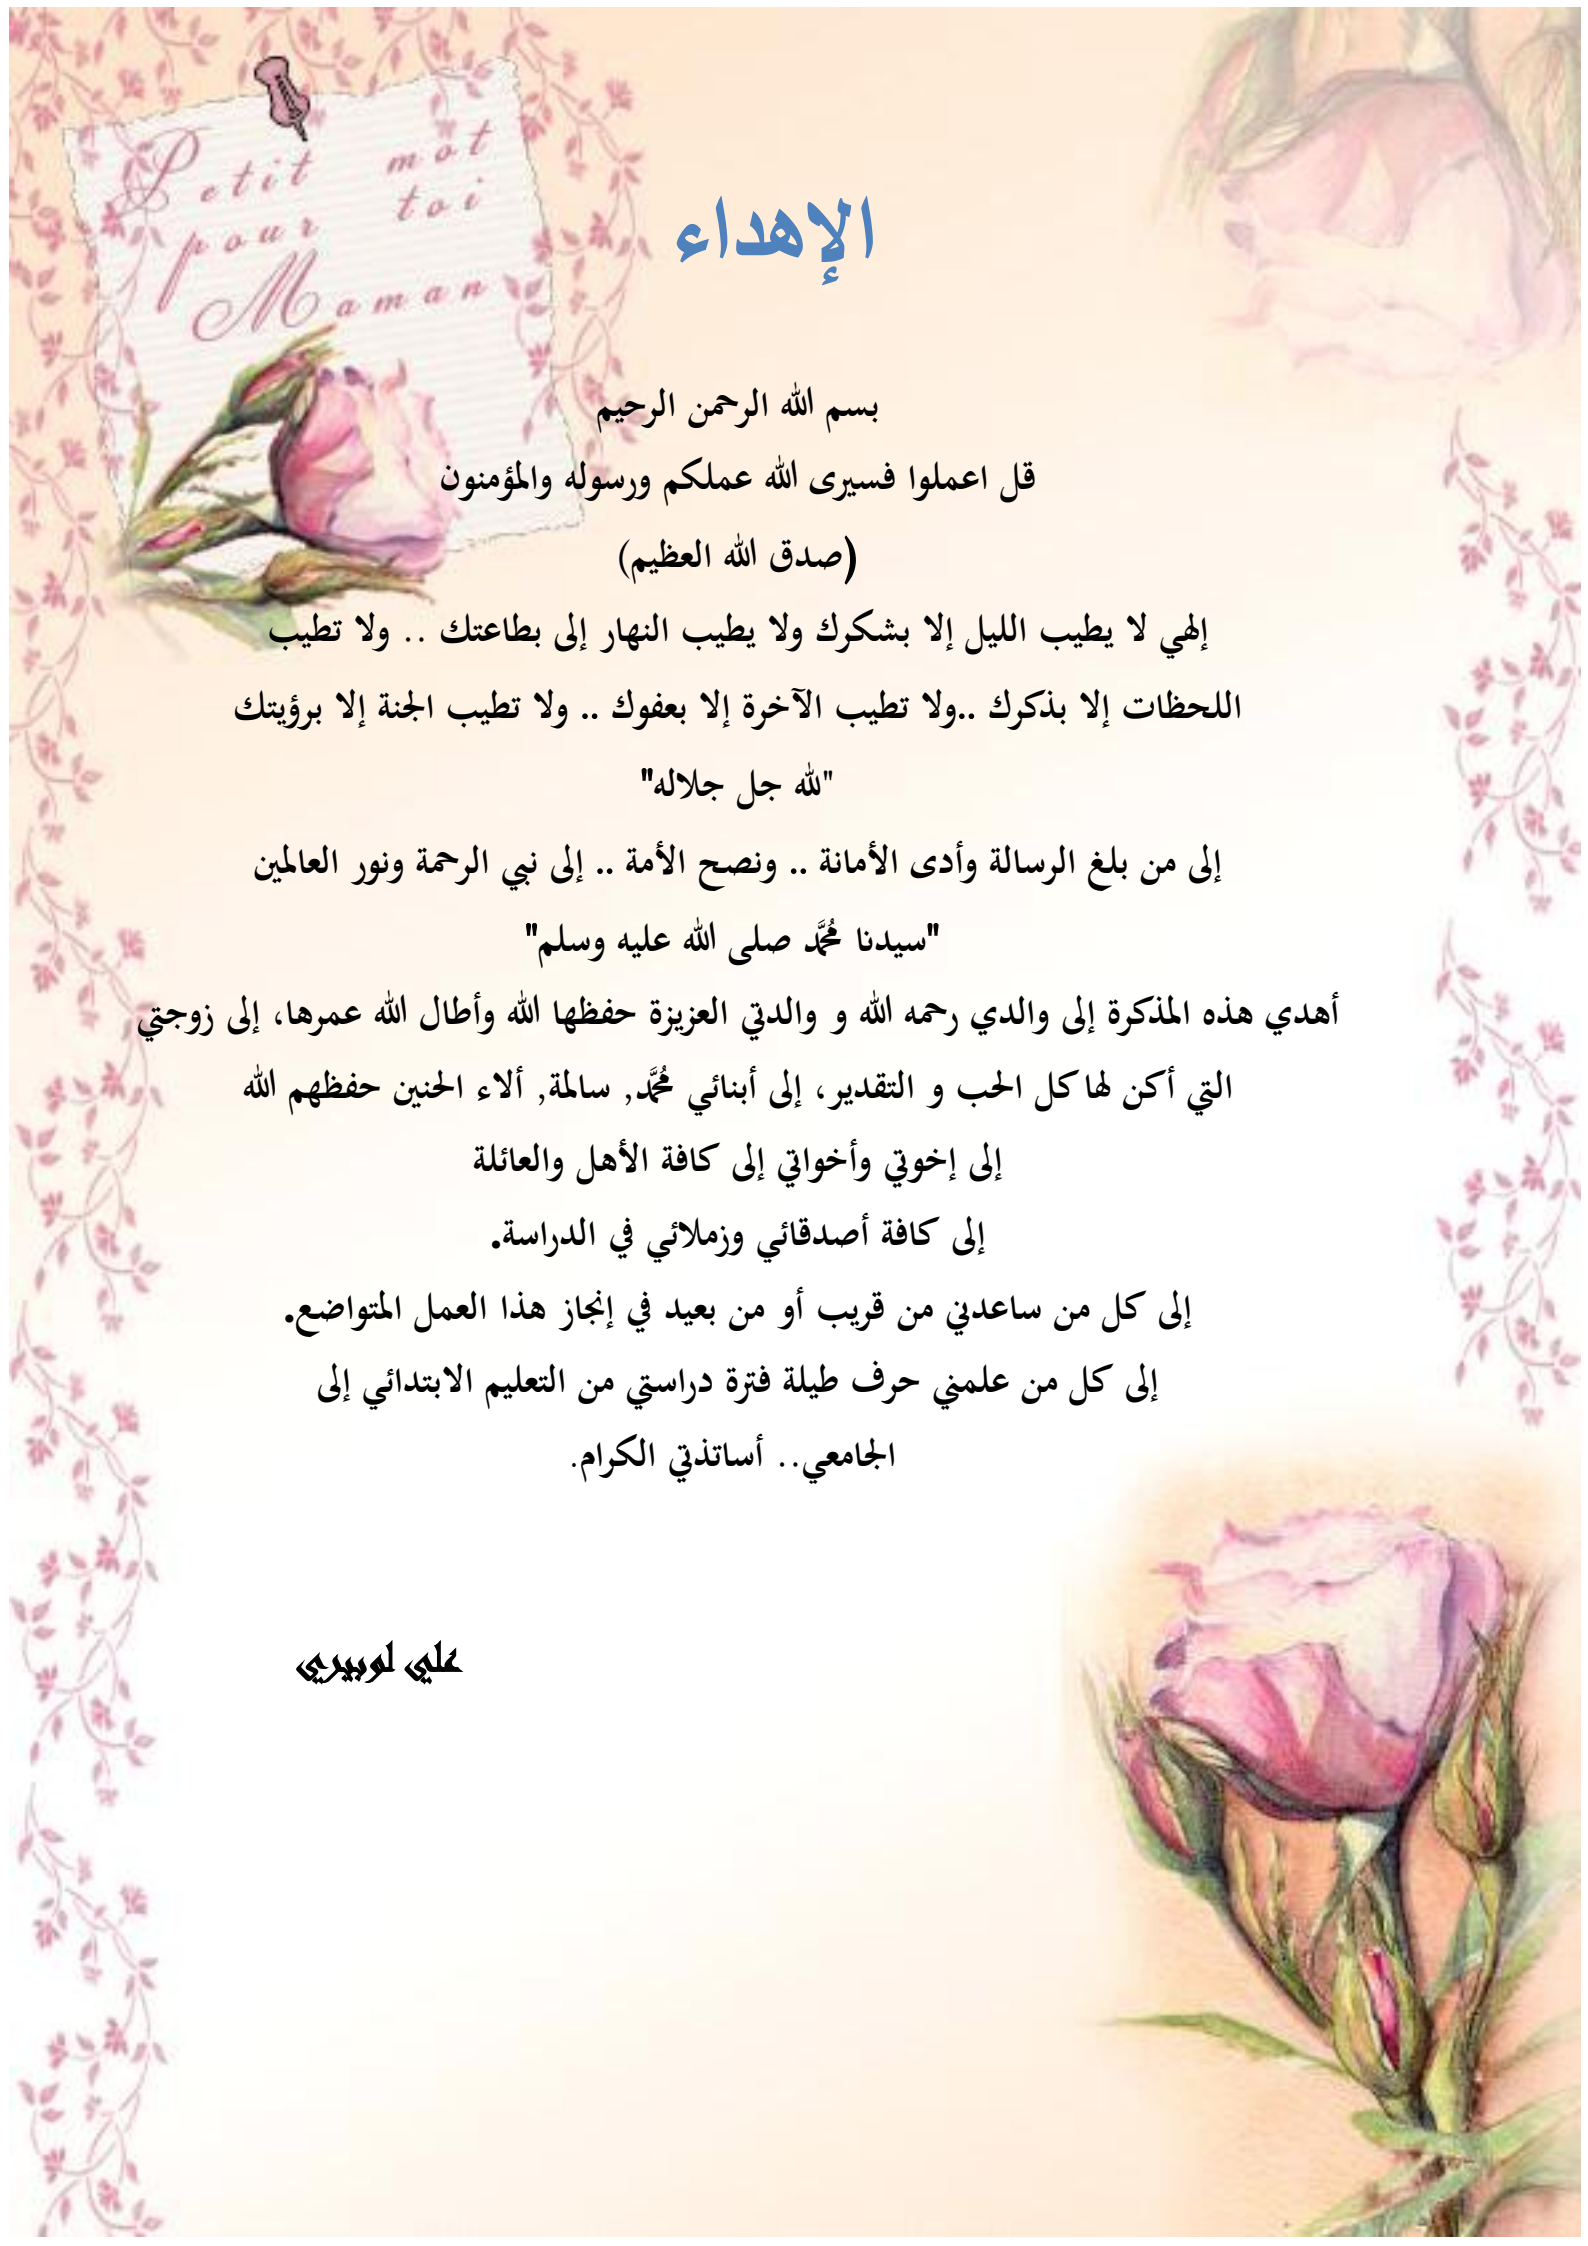 Petit mot
pour toi
Maman
الإهداء
بسم الله الرحمن الرحيم
قل اعملوا فسيرى الله عملكم ورسوله والمؤمنون
(صدق الله العظيم)
إلهي لا يطيب الليل إلا بشكرك ولا يطيب النهار إلى بطاعتك .. ولا تطيب
اللحظات إلا بذكرك ..ولا تطيب الآخرة إلا بعفوك .. ولا تطيب الجنة إلا برؤيتك
"لله جل جلاله"
إلى من بلغ الرسالة وأدى الأمانة .. ونصح الأمة .. إلى نبي الرحمة ونور العالمين
"سيدنا مُحَّد صلى الله عليه وسلم"
أهدي هذه المذكرة إلى والدي رحمه الله و والدتي العزيزة حفظها الله وأطال الله عمرها، إلى زوجتي
التي أكن لها كل الحب و التقدير، إلى أبنائي مُحَّد, سالمة, ألاء الحنين حفظهم الله
إلى إخوتي وأخواتي إلى كافة الأهل والعائلة
إلى كافة أصدقائي وزملائي في الدراسة.
إلى كل من ساعدني من قريب أو من بعيد في إنجاز هذا العمل المتواضع.
إلى كل من علمني حرف طيلة فترة دراستي من التعليم الابتدائي إلى
الجامعي.. أساتذتي الكرام.
علي لوبيري